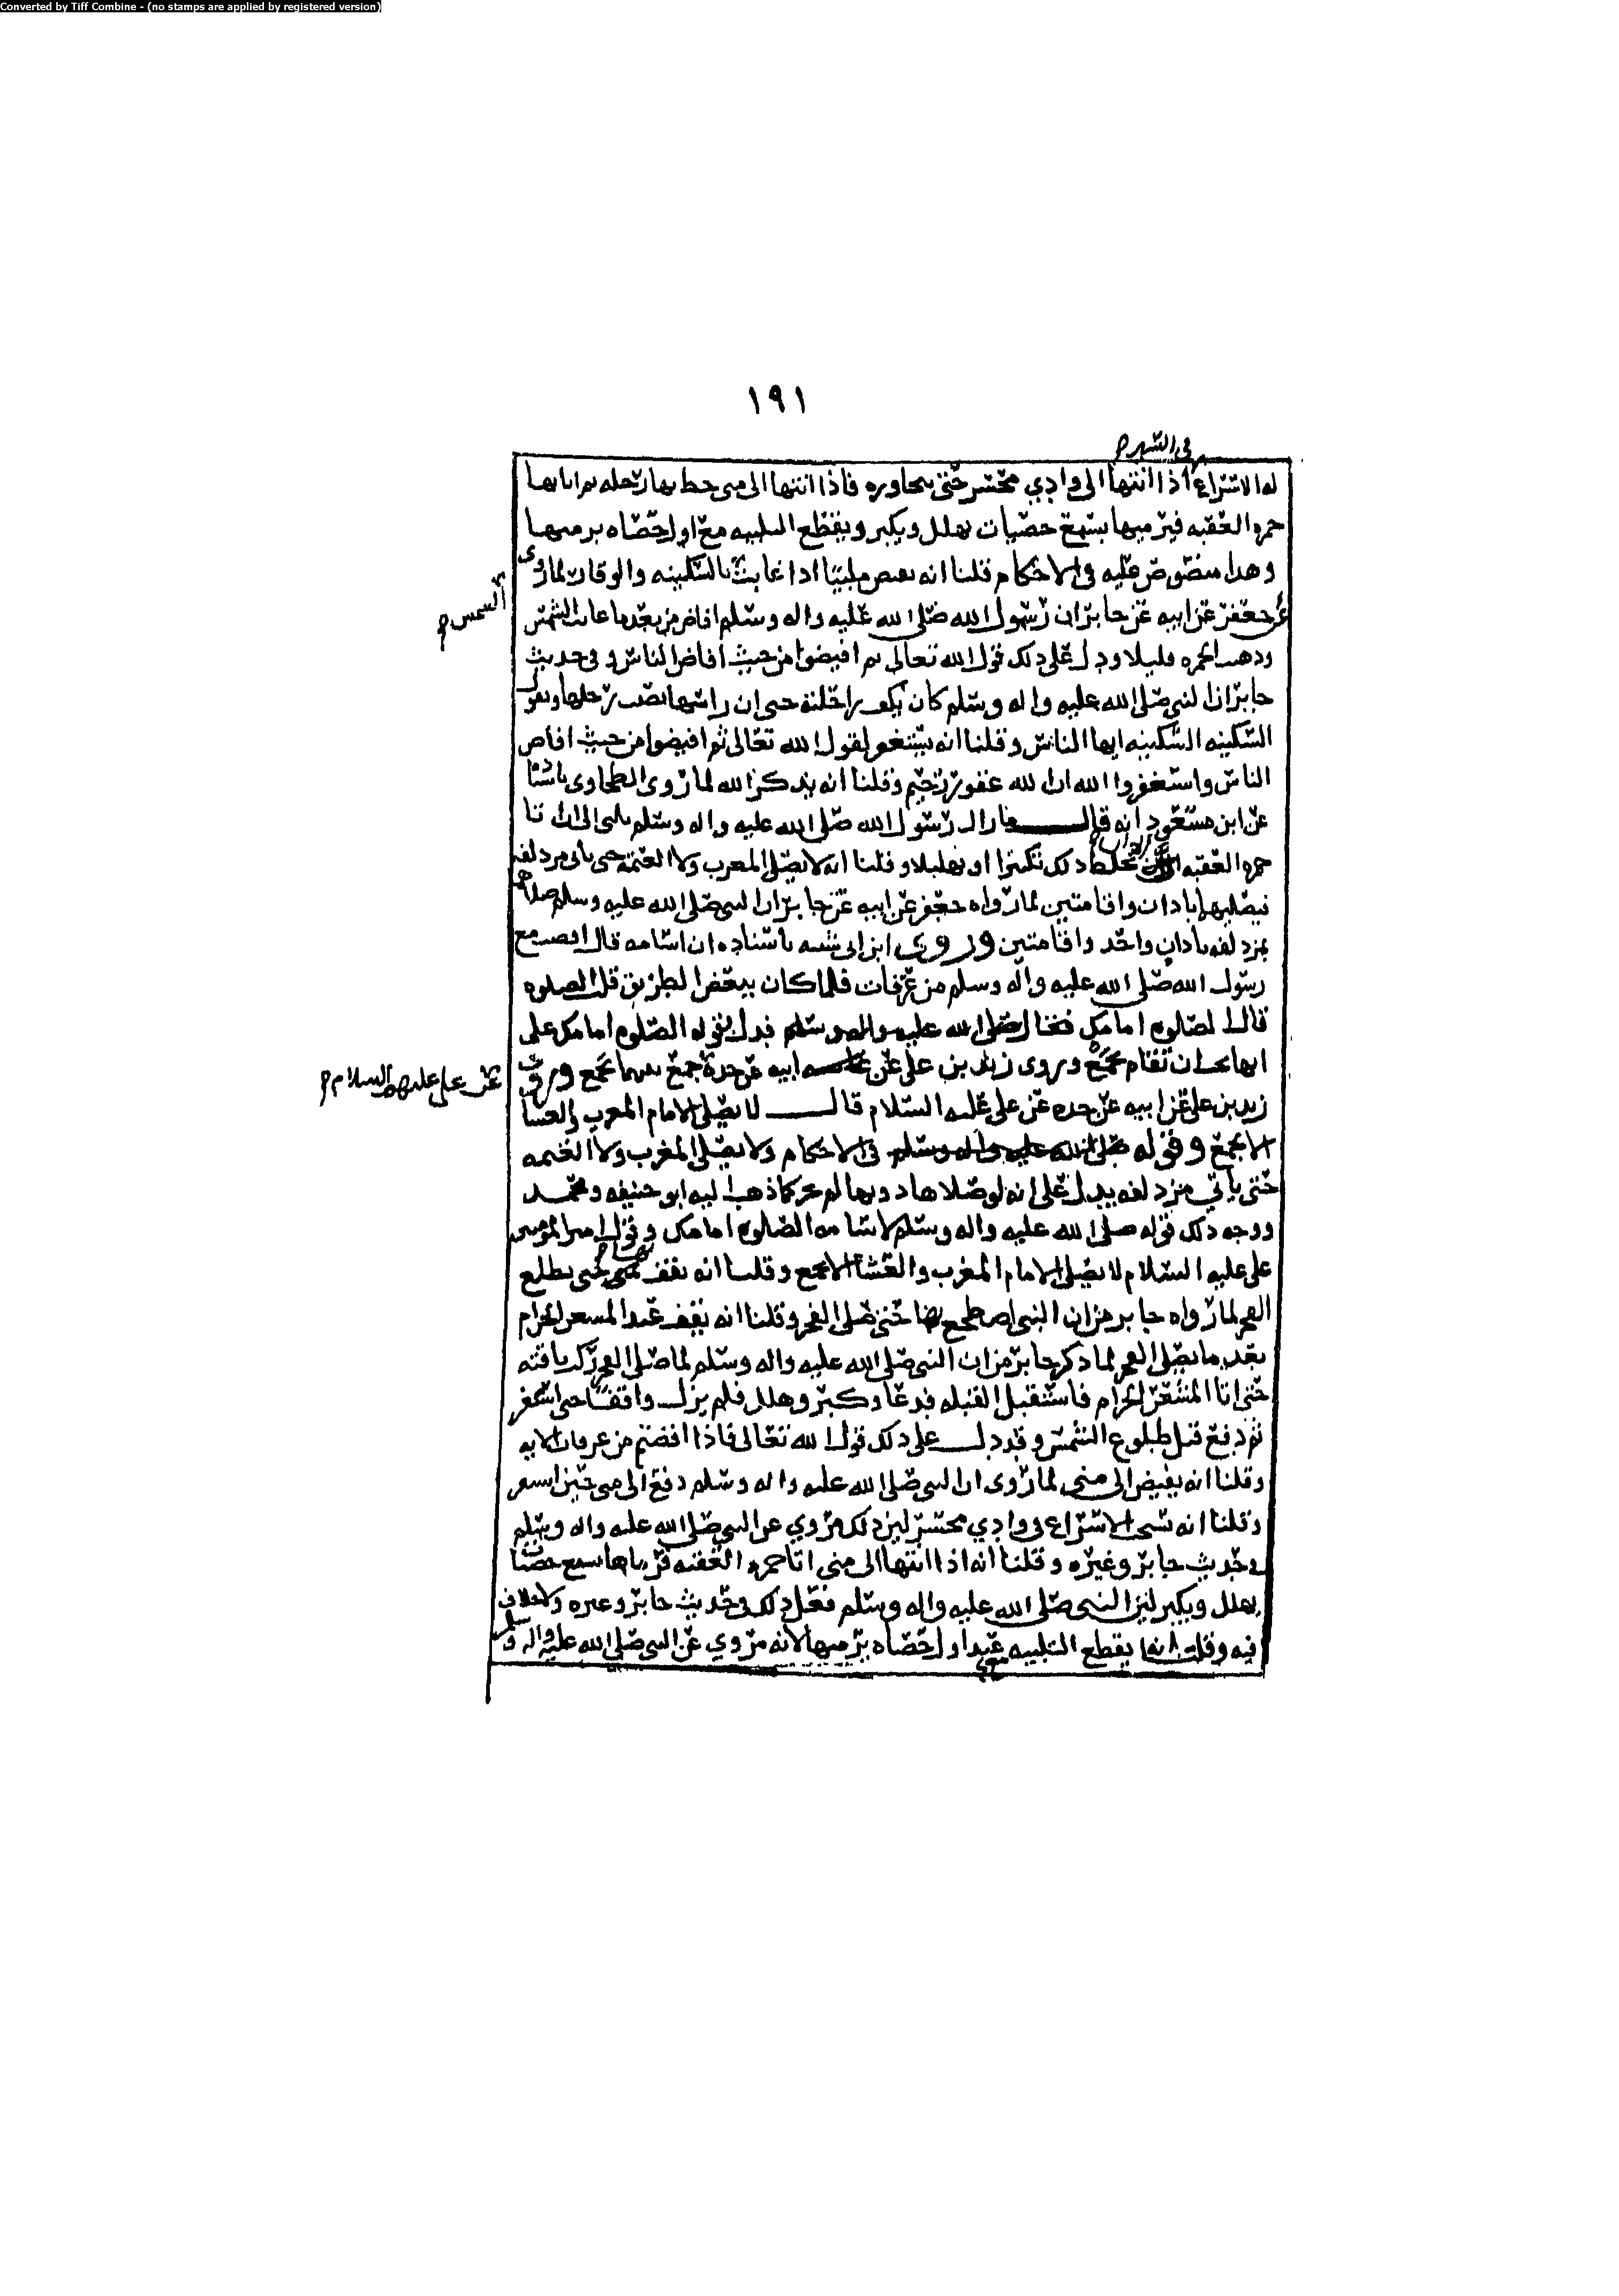 Converted by Tiff Combine - (no stamps are applied by registered version)
١٩١
في السير م
له الاسراع اذا انتها الى وادي محسر حتى يجاوره فاذا انتها الى منى حط بها رحله ثم اتا بها
جمره العقبه فيرميها بسبع حصيات يهلل ويكبر ويقطع التلبيه مع اول حصاه يرميها
وهذا منصوص عليه في الاحكام قلنا انه يفيض ملبيا اذا غابت بالسكينه والوقار لما روى
الشمس م
عن جعفر عن ابيه عن جابر ان رسول الله صلى الله عليه واله وسلم افاض من بعد ما غابت الشمس
وذهب الحمره قليلا ودل على ذلك قول الله تعالى ثم افيضوا من حيث افاض الناس وفي حديث
جابر ان النبي صلى الله عليه واله وسلم كان راحلته حتى ان راسها رحلها ويقول
السكينه السكينه ايها الناس وقلنا انه يستغفر لقول الله تعالى ثم افيضوا من حيث افاض
الناس واستغفروا الله ان الله غفور رحيم وقلنا انه يذكر الله لما روى الطحاوي باسناد
عن ابن مسعود انه قال ما زال رسول الله صلى الله عليه واله وسلم يلبي الى ان اتا
جمره العقبه الا ان يخلط ذلك تكبيرا او تهليلا وقلنا انه لا يصلي المغرب ولا العتمة حتى ياتي مزدلفه
فيصليهما باذان واقامتين لما رواه جعفر عن ابيه عن جابر ان النبي صلى الله عليه وسلم صلاهما
بمزدلفه باذان واحد واقامتين وروى ابن ابي شيبه باسناده ان اسامه قال افضت مع
رسول الله صلى الله عليه واله وسلم من عرفات فلما كان ببعض الطريق قلت الصلوه
قال الصلوه امامك فدل بقوله الصلوه امامك على
انها يجب ان تقام بجمع وروى زيد بن علي عن ابيه عن جده جمع بينهما بجمع وروى
عن علي عليهم السلام م
زيد بن علي عن ابيه عن جده عن علي عليه السلام قال لا يصلي الامام المغرب والعشا
الا بجمع وقوله في الاحكام ولا يصلي المغرب ولا العتمه
حتى ياتي مزدلفه يدل على انه لو صلاها دونها لم يجز كما ذهب اليه ابو حنيفه ومحمد
ووجه ذلك قوله صلى الله عليه واله وسلم لاسامه الصلوه امامك وقول امير المومنين
علي عليه السلام لا يصلي الامام المغرب والعشا الا بجمع وقلنا انه يقف بها حتى يطلع
الفجر لما رواه جابر من ان النبي اضطجع بها حتى صلى الفجر وقلنا انه يقف عند المشعر الحرام
بعد ما يصلي الفجر لما ذكر جابر من ان النبي صلى الله عليه واله وسلم لما صلى الفجر ركب ناقته
حتى اتا المشعر الحرام فاستقبل القبله فدعا وكبر وهلل فلم يزل واقفا حتى اسفر
ثم دفع قبل طلوع الشمس وقد دل على ذلك قول الله تعالى فاذا افضتم من عرفات الايه
وقلنا انه يفيض الى منى لما روى ان النبي صلى الله عليه واله وسلم دفع الى منى حين اسفر
وقلنا انه يستحب الاسراع في وادي محسر لان ذلك مروي عن النبي صلى الله عليه واله وسلم
في حديث جابر وغيره وقلنا انه اذا انتها الى منى اتا جمره العقبه فرماها بسبع حصيات
يهلل ويكبر لان النبي صلى الله عليه واله وسلم فعل ذلك في حديث جابر وغيره ولا خلاف
فيه وقلنا انه يقطع التلبيه عند اول حصاه يرميها لانه مروي عن النبي صلى الله عليه واله وسلم